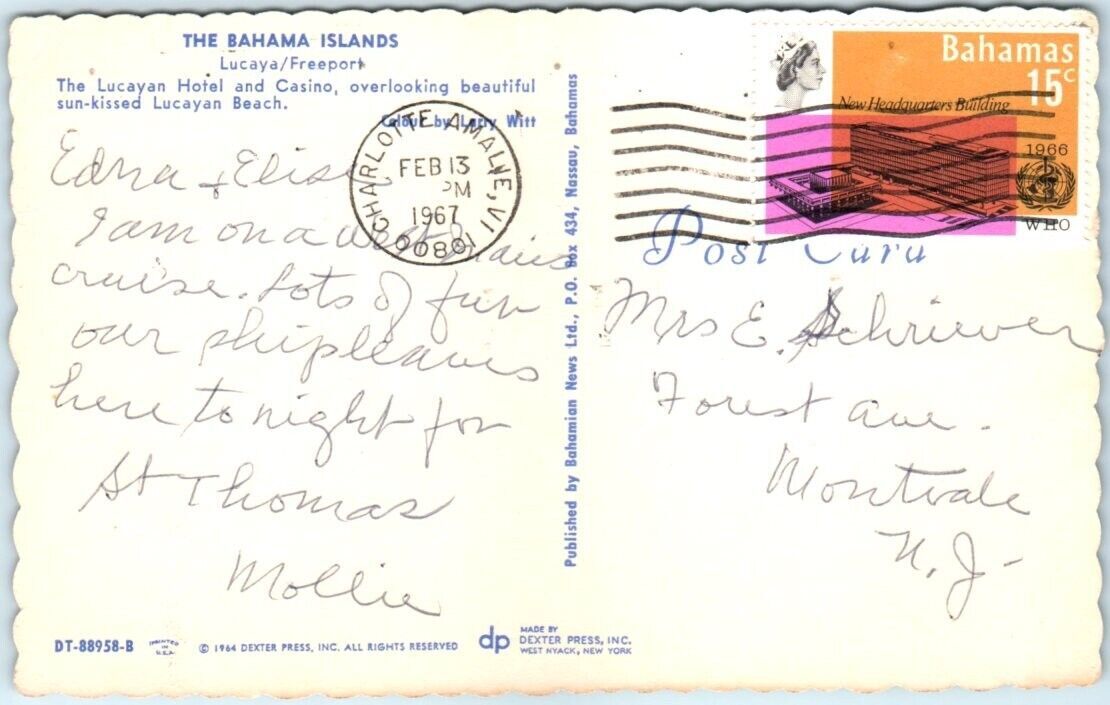 THE BAHAMA ISLANDS
Lucaya/Freeport
The Lucayan Hotel and Casino, overlooking beautiful
sun-kissed Lucayan Beach.
Colour by Larry Witt
Edna + Elise
I am on a west Indies
cruise. Lots of fun
our ship leaves
here tonight for
St Thomas
Mollie
DT-88958-B
PRINTED
IN
U.S.A.
© 1964 DEXTER PRESS, INC. ALL RIGHTS RESERVED
dp
MADE BY
DEXTER PRESS, INC.
WEST NYACK, NEW YORK
Published by Bahamian News Ltd., P.O. Box 434, Nassau, Bahamas
CHARLOTTE AMALIE, VI 00801
FEB 13
PM
1967
Bahamas
15c
New Headquarters Building
1966
WHO
Post Card
Mrs E. Schriever
Forest Ave.
Montvale
N.J.